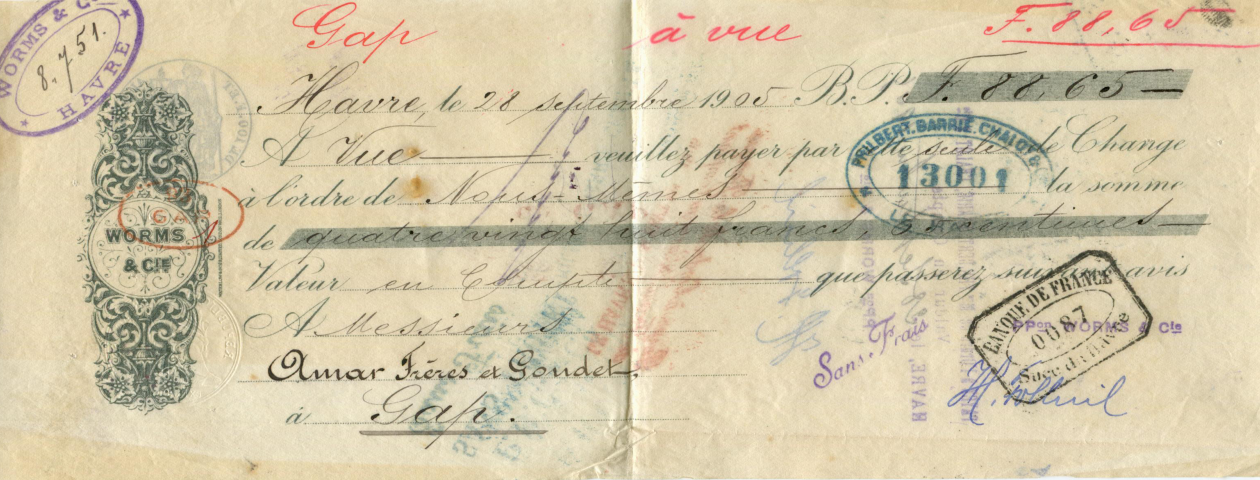 WORMS & Cie
8.751.
HAVRE
Gap à vue F. 88,65
Havre, le 28 septembre 1905 B.P. F. 88,65
A Vue veuillez payer par cette seule de Change
à l'ordre de Nous-Mêmes la somme
de quatre vingt huit francs, 65 centimes
Valeur en Compte que passerez suivant avis
A Messieurs
Amar Frères et Goudet,
à Gap.
WORMS
& CIE
PHILBERT, BARRIÉ, CHALOT &
13001
Sans Frais
BANQUE DE FRANCE
0087
Succ. du Havre
PPon WORMS & Cie